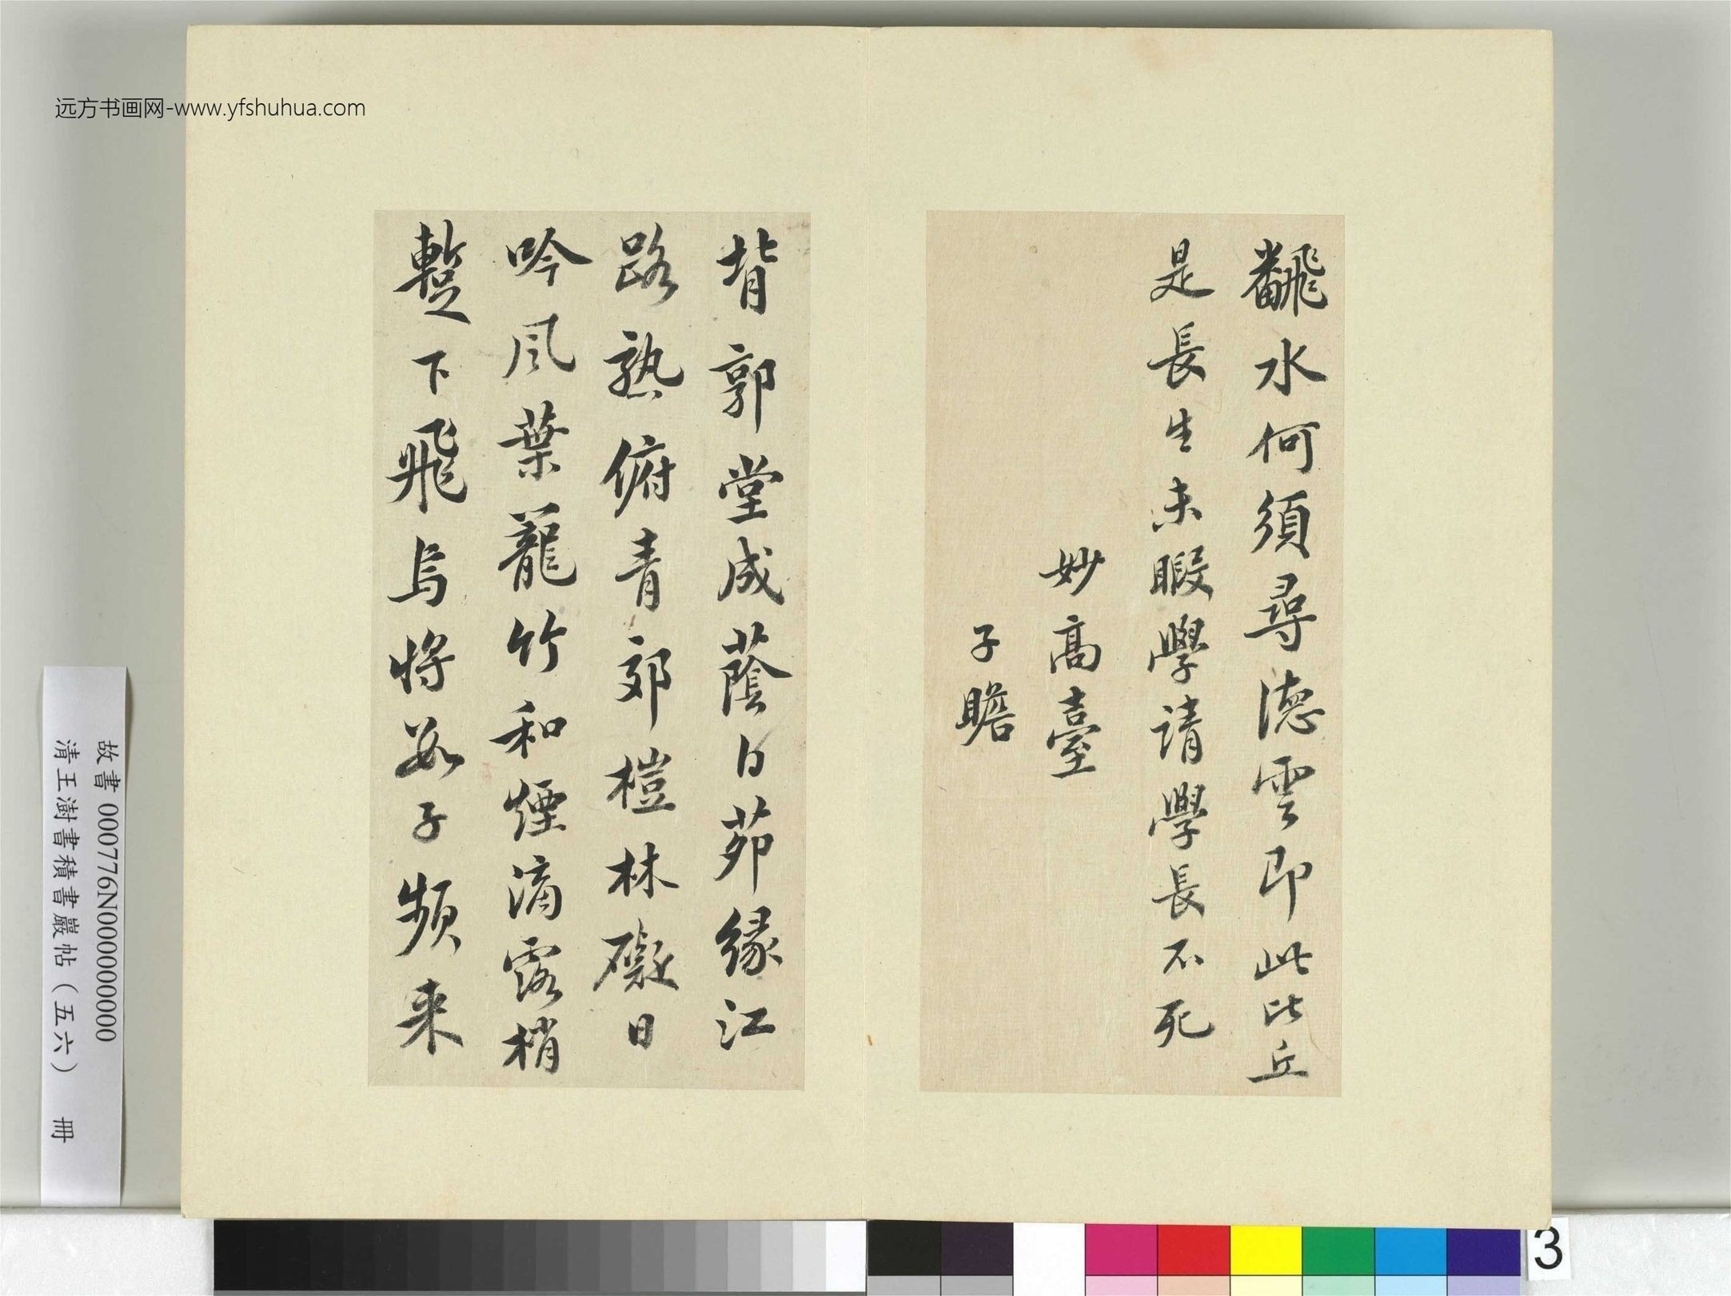 远方书画网-www.yfshuhua.com
飜水何須尋德雲即此比丘
是長生未暇學請學長不死
妙高臺
子瞻
背郭堂成蔭白茆緣江
路熟俯青郊榿林礙日
吟風葉籠竹和煙滴露梢
蹔下飛烏將數子頻来
故書 000776N000000000
清王澍書積書巖帖(五六) 冊
3